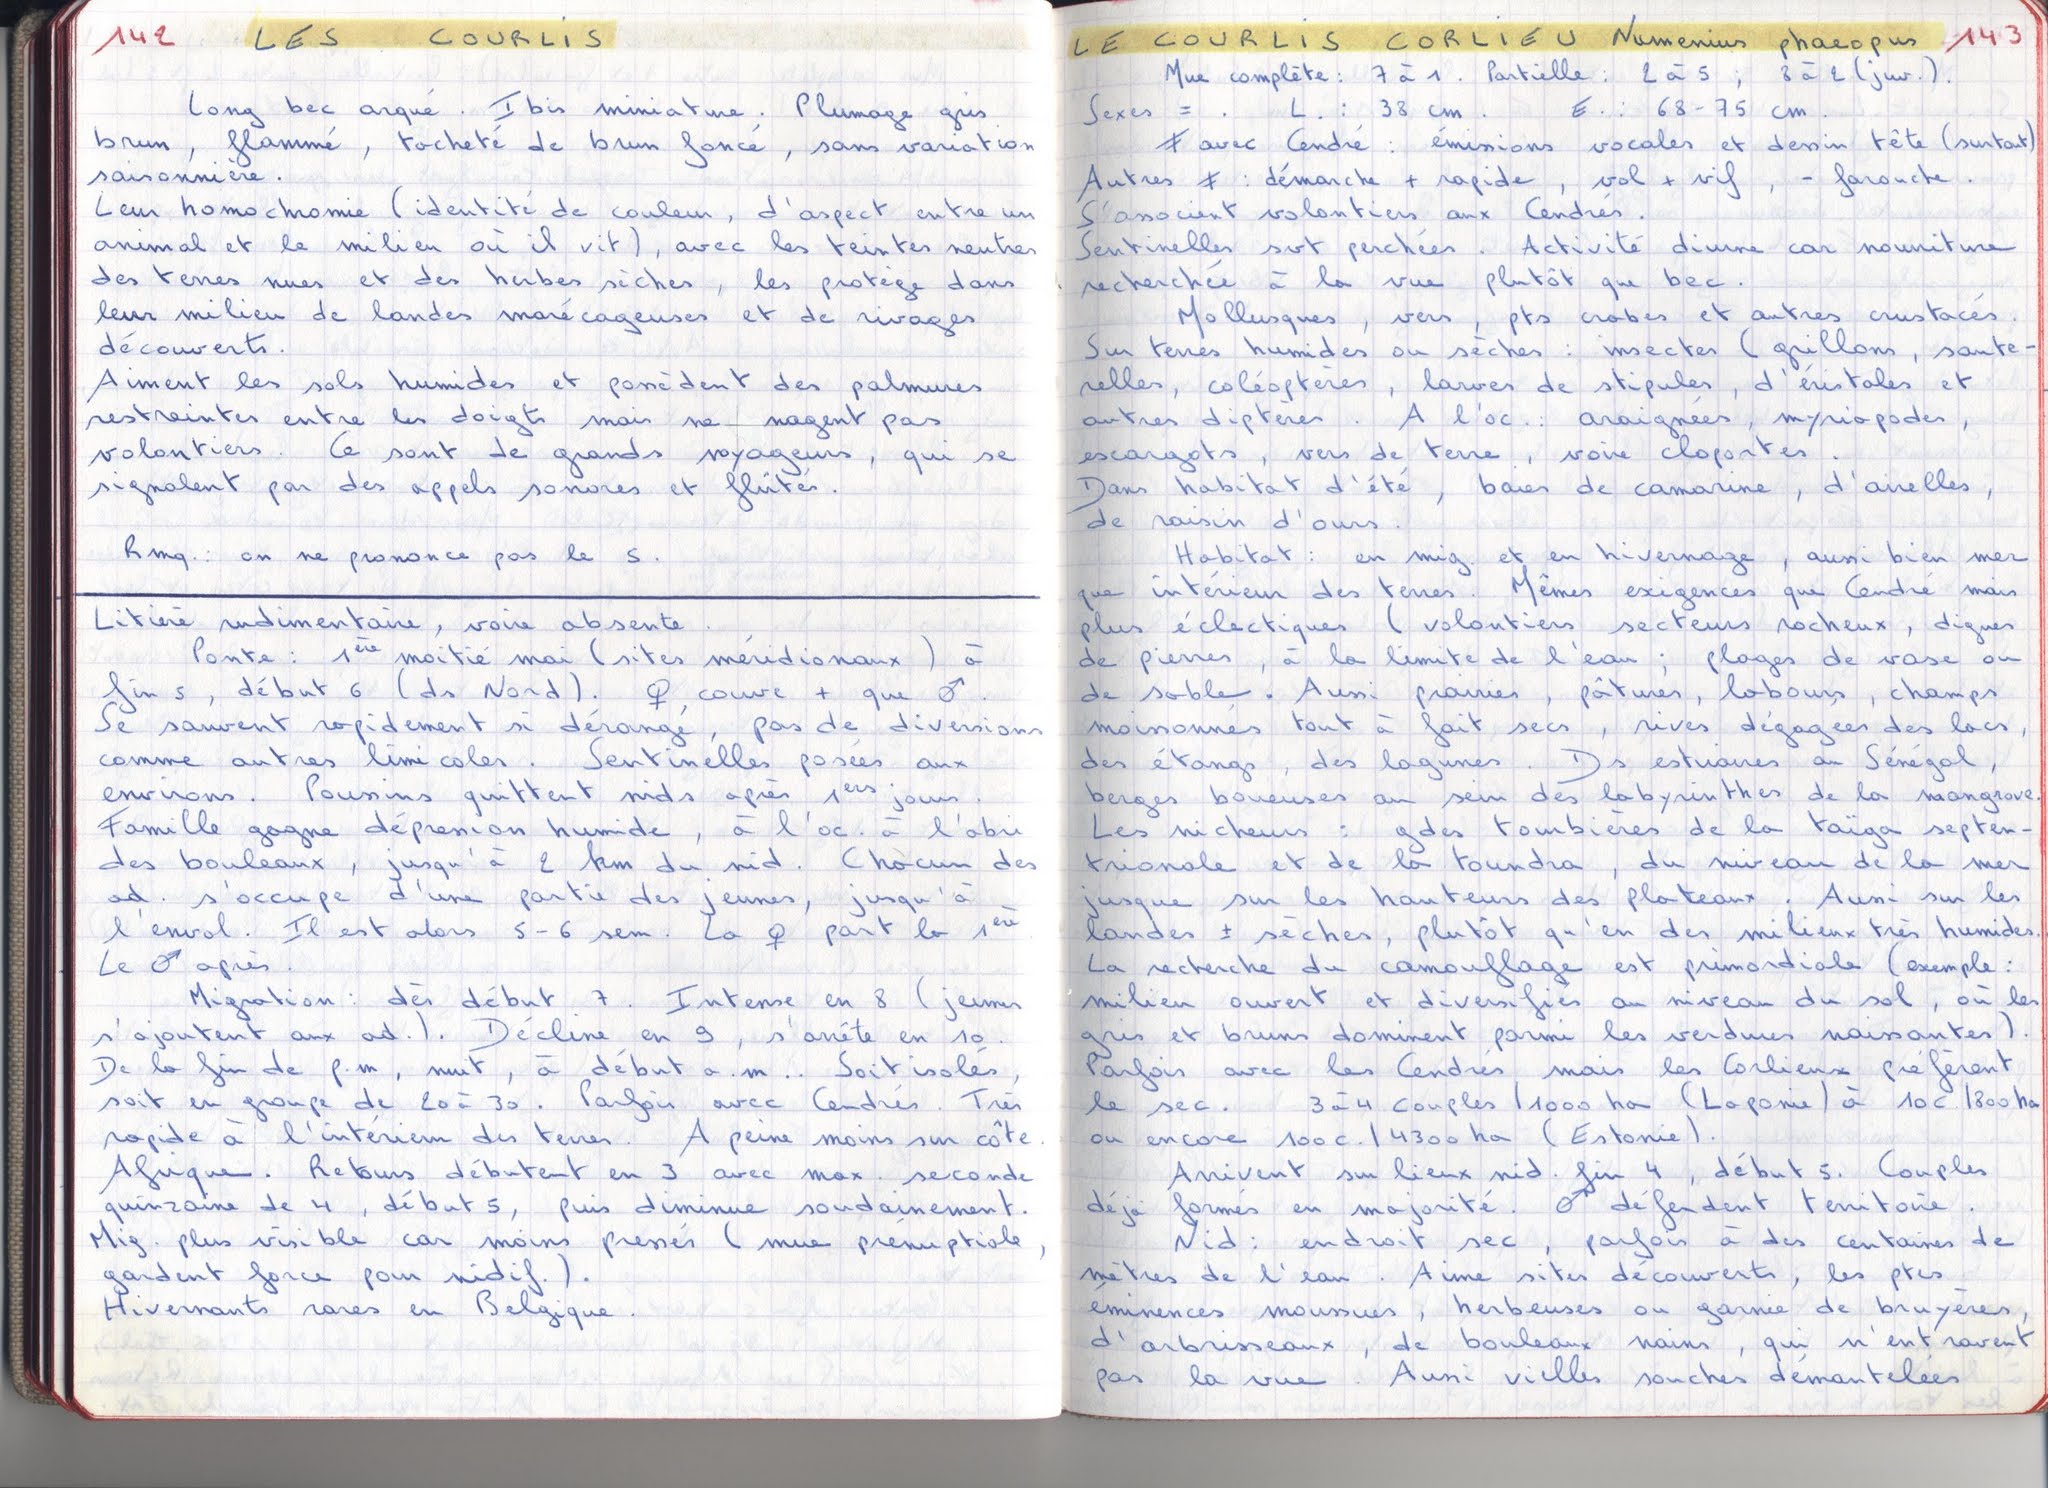 142 LES COURLIS
Long bec arqué. Ibis miniature. Plumage gris
brun, flammé, tacheté de brun foncé, sans variation
saisonnière.
Leur homochromie (identité de couleur, d'aspect entre un
animal et le milieu où il vit), avec les teintes neutres
des terres nues et des herbes sèches, les protège dans
leur milieu de landes marécageuses et de rivages
découverts.
Aiment les sols humides et possèdent des palmures
restreintes entre les doigts mais ne nagent pas
volontiers. Ce sont de grands voyageurs, qui se
signalent par des appels sonores et flûtés.
Rmq.: on ne prononce pas le s.
Litière rudimentaire, voire absente.
Ponte: 1ère moitié mai (sites méridionaux) à
fin 5, début 6 (ds Nord). ♀ couve + que ♂.
Se sauvent rapidement si dérangé, pas de diversions
comme autres limicoles. Sentinelles posées aux
environs. Poussins quittent nids après 1ers jours.
Famille gagne dépression humide, à l'oc. à l'abri
des bouleaux, jusqu'à 2 km du nid. Chacun des
ad. s'occupe d'une partie des jeunes, jusqu'à
l'envol. Il est alors 5-6 sem. La ♀ part la 1ère
Le ♂ après.
Migration: dès début 7. Intense en 8 (jeunes
s'ajoutent aux ad.). Décline en 9, s'arrête en 10.
De la fin de p.m, nuit, à début a.m.. Soit isolés,
soit en groupe de 20 à 30. Parfois avec Cendrés. Très
rapide à l'intérieur des terres. A peine moins sur côte.
Afrique. Retours débutent en 3 avec max. seconde
quinzaine de 4, début 5, puis diminue soudainement.
Mig. plus visible car moins pressés (mue prénuptiale,
gardent force pour nidif.).
Hivernants rares en Belgique.
LE COURLIS CORLIEU Numenius phaeopus 143
Mue complète: 7 à 1. Partielle: 2 à 5; 8 à 2 (juv.).
Sexes =. L.: 38 cm. E.: 68-75 cm.
≠ avec Cendré: émissions vocales et dessin tête (surtout)
Autres ≠: démarche + rapide, vol + vif, - farouche.
S'associent volontiers aux Cendrés.
Sentinelles svt perchées. Activité diurne car nourriture
recherchée à la vue plutôt que bec.
Mollusques, vers, pts crabes et autres crustacés.
Sur terres humides ou sèches: insectes (grillons, saute-
relles, coléoptères, larves de stipules, d'éristales et
autres diptères. A l'oc.: araignées, myriapodes,
escargots, vers de terre, voire cloportes.
Dans habitat d'été, baies de camarine, d'airelles,
de raisin d'ours.
Habitat: en mig. et en hivernage, aussi bien mer
que intérieur des terres. Mêmes exigences que Cendré mais
plus éclectiques (volontiers secteurs rocheux, digues
de pierres, à la limite de l'eau; plages de vase ou
de sable. Aussi prairies, pâtures, labours, champs
moissonnés tout à fait secs, rives dégagées des lacs,
des étangs, des lagunes. Ds estuaires au Sénégal,
berges boueuses au sein des labyrinthes de la mangrove.
Les nicheurs: gdes tourbières de la taïga septen-
trionale et de la toundra, du niveau de la mer
jusque sur les hauteurs des plateaux. Aussi sur les
landes ± sèches, plutôt qu'en des milieux très humides.
La recherche du camouflage est primordiale (exemple:
milieu ouvert et diversifiés au niveau du sol, où les
gris et bruns dominent parmi les verdures naissantes).
Parfois avec les Cendrés mais les Corlieux préfèrent
le sec. 3 à 4 couples/1000 ha (Laponie) à 10c./800 ha
ou encore 100 c./4300 ha (Estonie).
Arrivent sur lieux nid. fin 4, début 5. Couples
déjà formés en majorité. ♂ défendent territoire.
Nid: endroit sec, parfois à des centaines de
mètres de l'eau. Aime sites découverts, les ptes
éminences moussues, herbeuses ou garnie de bruyères,
d'arbrisseaux, de bouleaux nains, qui n'entravent
pas la vue. Aussi vielles souches démantelées